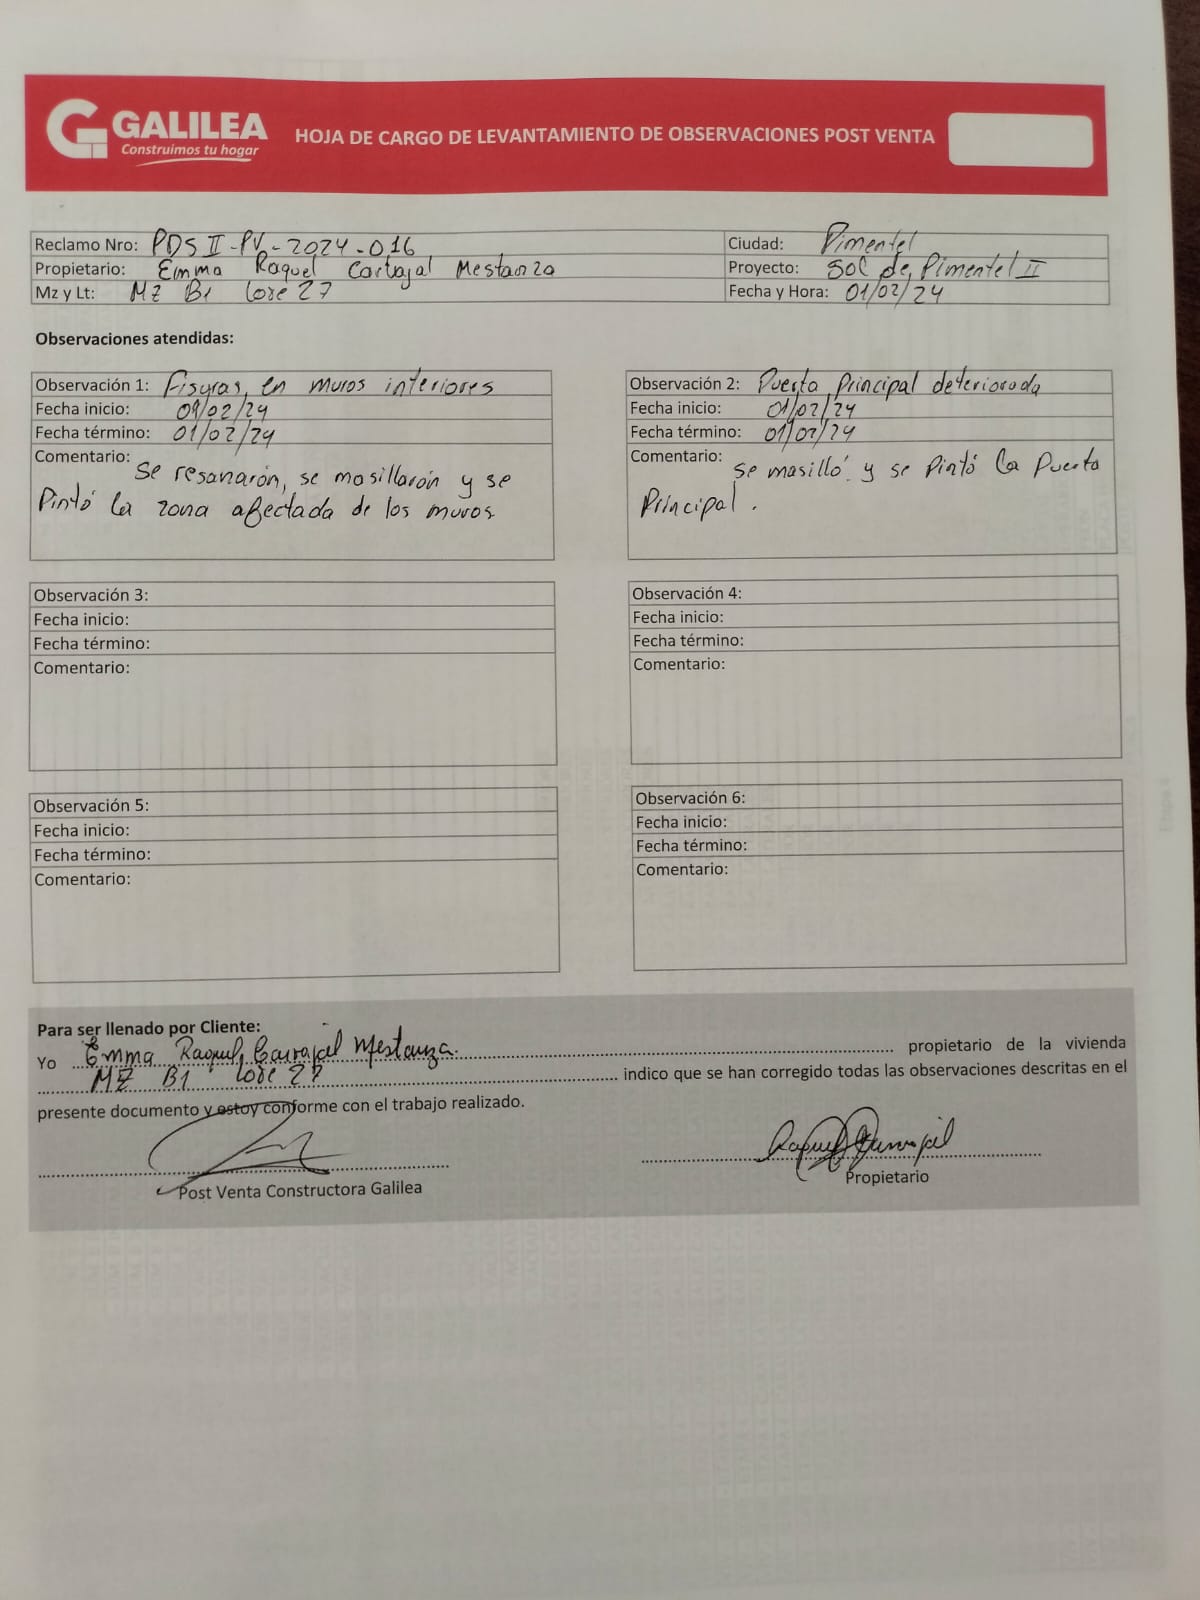 GALILEA
Construimos tu hogar
HOJA DE CARGO DE LEVANTAMIENTO DE OBSERVACIONES POST VENTA
Reclamo Nro: PDS II-PV-2024-016
Ciudad: Pimentel
Propietario: Emma Raquel Carbajal Mestanza
Proyecto: Sol de Pimentel II
Mz y Lt: MZ B1 Lote 27
Fecha y Hora: 01/02/24
Observaciones atendidas:
Observación 1: Fisuras en muros interiores
Fecha inicio: 01/02/24
Fecha término: 01/02/24
Comentario: Se resanarón, se masillarón y se
Pintó la zona afectada de los muros
Observación 2: Puerta Principal deteriorada
Fecha inicio: 01/02/24
Fecha término: 01/02/24
Comentario: Se masilló y se Pintó la Puerta
Principal.
Observación 3:
Fecha inicio:
Fecha término:
Comentario:
Observación 4:
Fecha inicio:
Fecha término:
Comentario:
Observación 5:
Fecha inicio:
Fecha término:
Comentario:
Observación 6:
Fecha inicio:
Fecha término:
Comentario:
Para ser llenado por Cliente:
Yo Emma Raquel Carvajal Mestanza. propietario de la vivienda
MZ B1 Lote 27 indico que se han corregido todas las observaciones descritas en el
presente documento y estoy conforme con el trabajo realizado.
Raquel Carvajal
Post Venta Constructora Galilea
Propietario